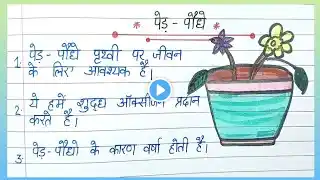 * पेड़ - पौधे *
1. पेड़ - पौधे पृथ्वी पर जीवन
के लिए आवश्यक है।
2. ये हमें शुद्ध ऑक्सीजन प्रदान
करते है।
3. पेड़ - पौधो के कारण वर्षा होती है।